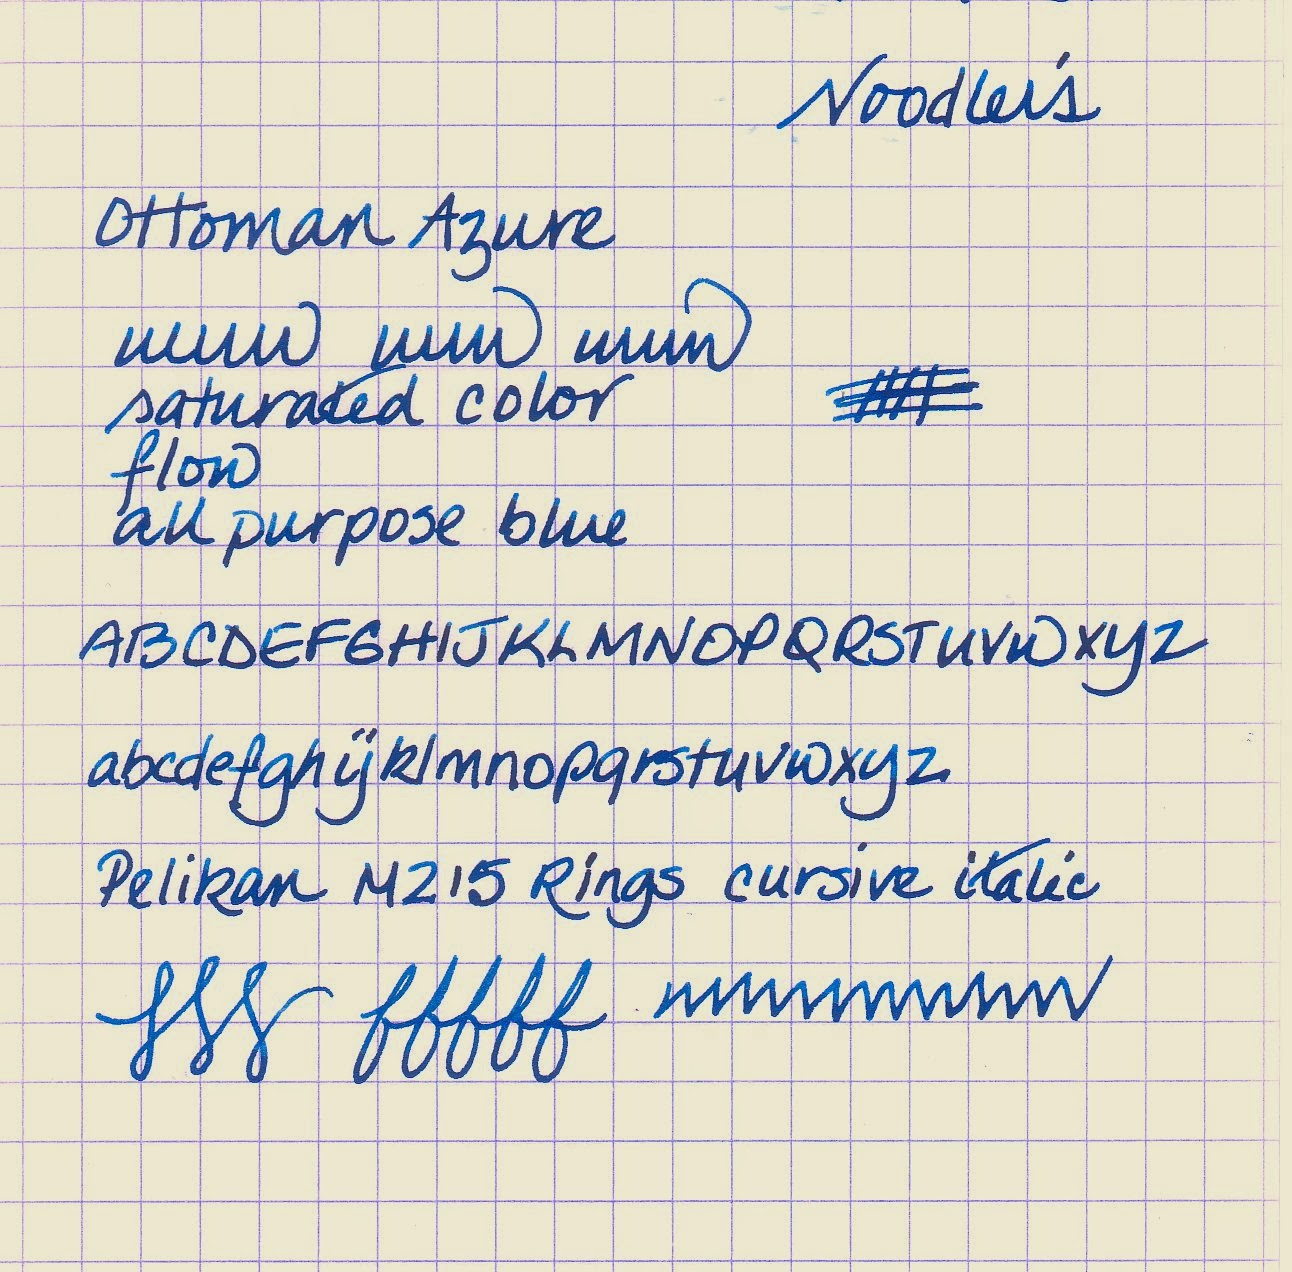 Noodler's
Ottoman Azure
saturated color
flow
all purpose blue
ABCDEFGHIJKLMNOPQRSTUVWXYZ
abcdefghijklmnopqrstuvwxyz
Pelikan M215 Rings cursive italic
fffff